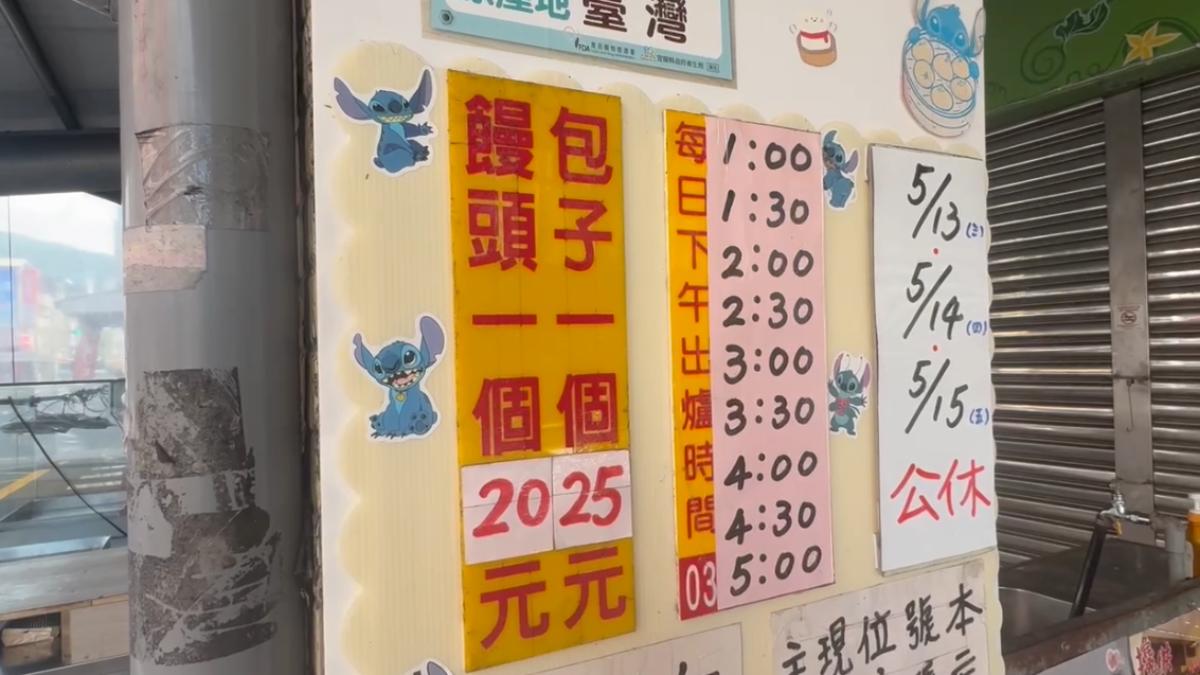 原產地 臺灣
包子一個25元
饅頭一個20元
每日下午出爐時間
1:00
1:30
2:00
2:30
3:00
3:30
4:00
4:30
5:00
03
5/13(三)
5/14(四)
5/15(五)
公休
本
號
位
現